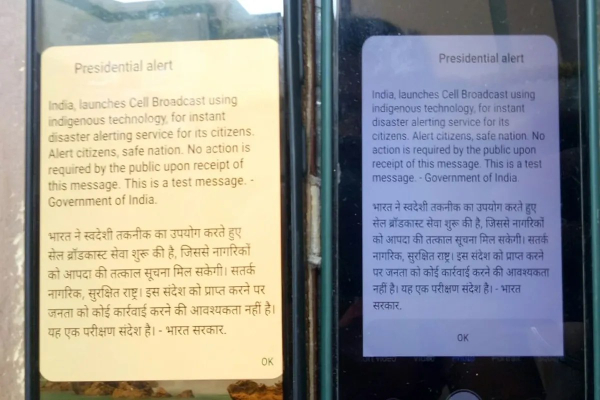 Presidential alert
India, launches Cell Broadcast using
indigenous technology, for instant
disaster alerting service for its citizens.
Alert citizens, safe nation. No action is
required by the public upon receipt of
this message. This is a test message. -
Government of India.
भारत ने स्वदेशी तकनीक का उपयोग करते हुए
सेल ब्रॉडकास्ट सेवा शुरू की है, जिससे नागरिकों
को आपदा की तत्काल सूचना मिल सकेगी। सतर्क
नागरिक, सुरक्षित राष्ट्र। इस संदेश को प्राप्त करने पर
जनता को कोई कार्रवाई करने की आवश्यकता नहीं है।
यह एक परीक्षण संदेश है। - भारत सरकार.
OK
Presidential alert
India, launches Cell Broadcast using
indigenous technology, for instant
disaster alerting service for its
citizens. Alert citizens, safe nation. No
action is required by the public upon
receipt of this message. This is a test
message. - Government of India.
भारत ने स्वदेशी तकनीक का उपयोग करते हुए
सेल ब्रॉडकास्ट सेवा शुरू की है, जिससे नागरिकों
को आपदा की तत्काल सूचना मिल सकेगी। सतर्क
नागरिक, सुरक्षित राष्ट्र। इस संदेश को प्राप्त करने
पर जनता को कोई कार्रवाई करने की आवश्यकता
नहीं है। यह एक परीक्षण संदेश है। - भारत
सरकार.
OK